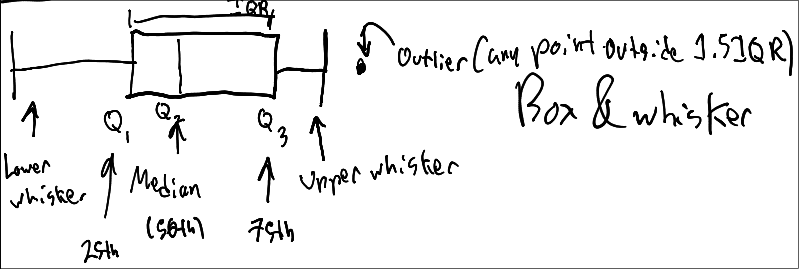 IQR
Outlier (any point outside 1.5IQR)
Box & whisker
Q1
Q2
Q3
Lower
whisker
Median
(50th)
Upper whisker
25th
75th